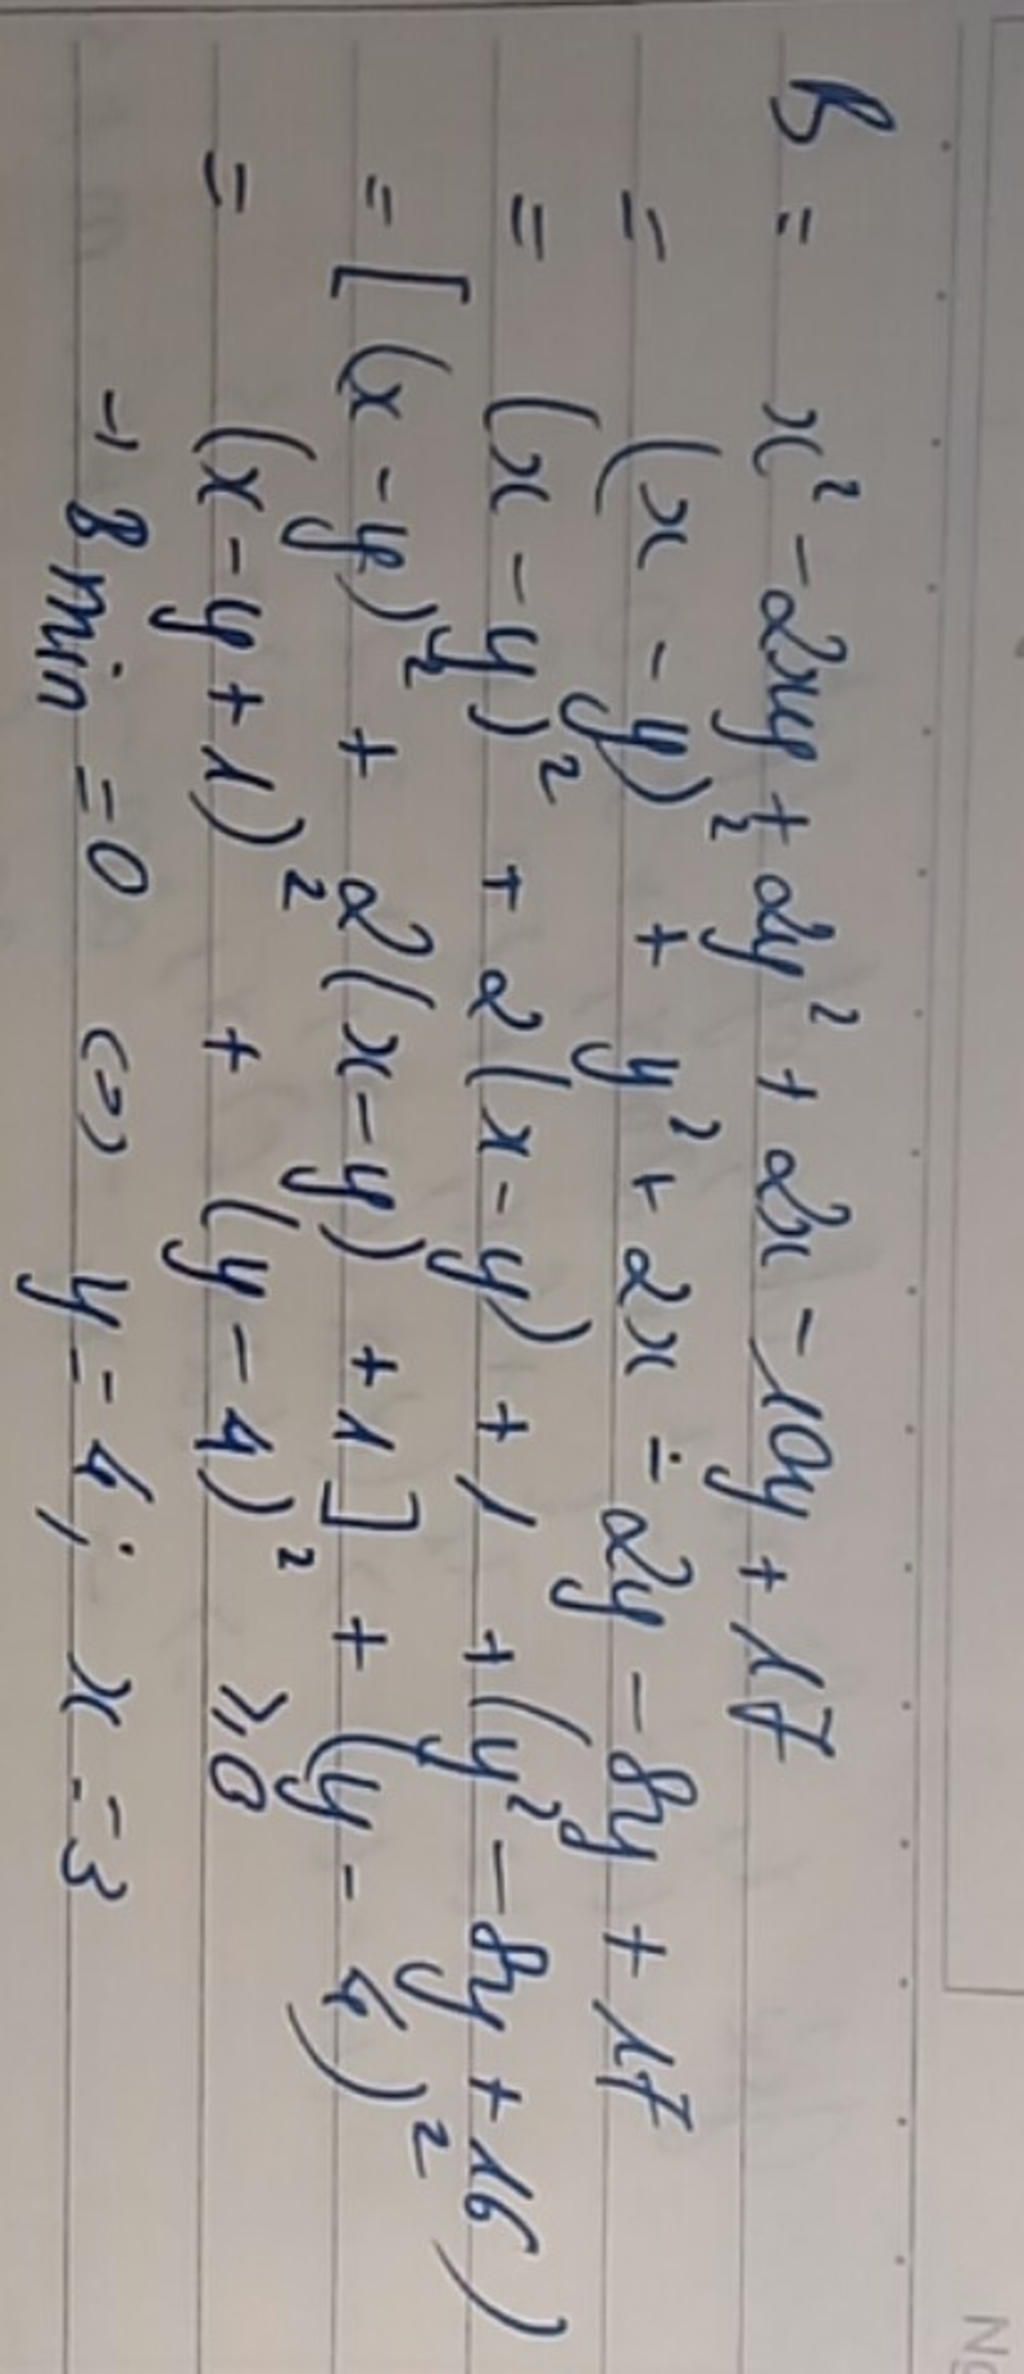 B = x² - 2xy + 2y² + 2x - 10y + 17
= (x - y)² + y² + 2x - 2y - 8y + 17
= (x - y)² + 2(x - y) + 1 + (y² - 8y + 16)
= [(x - y)² + 2(x - y) + 1] + (y - 4)²
= (x - y + 1)² + (y - 4)² ≥ 0
→ B min = 0 <=> y = 4; x = 3